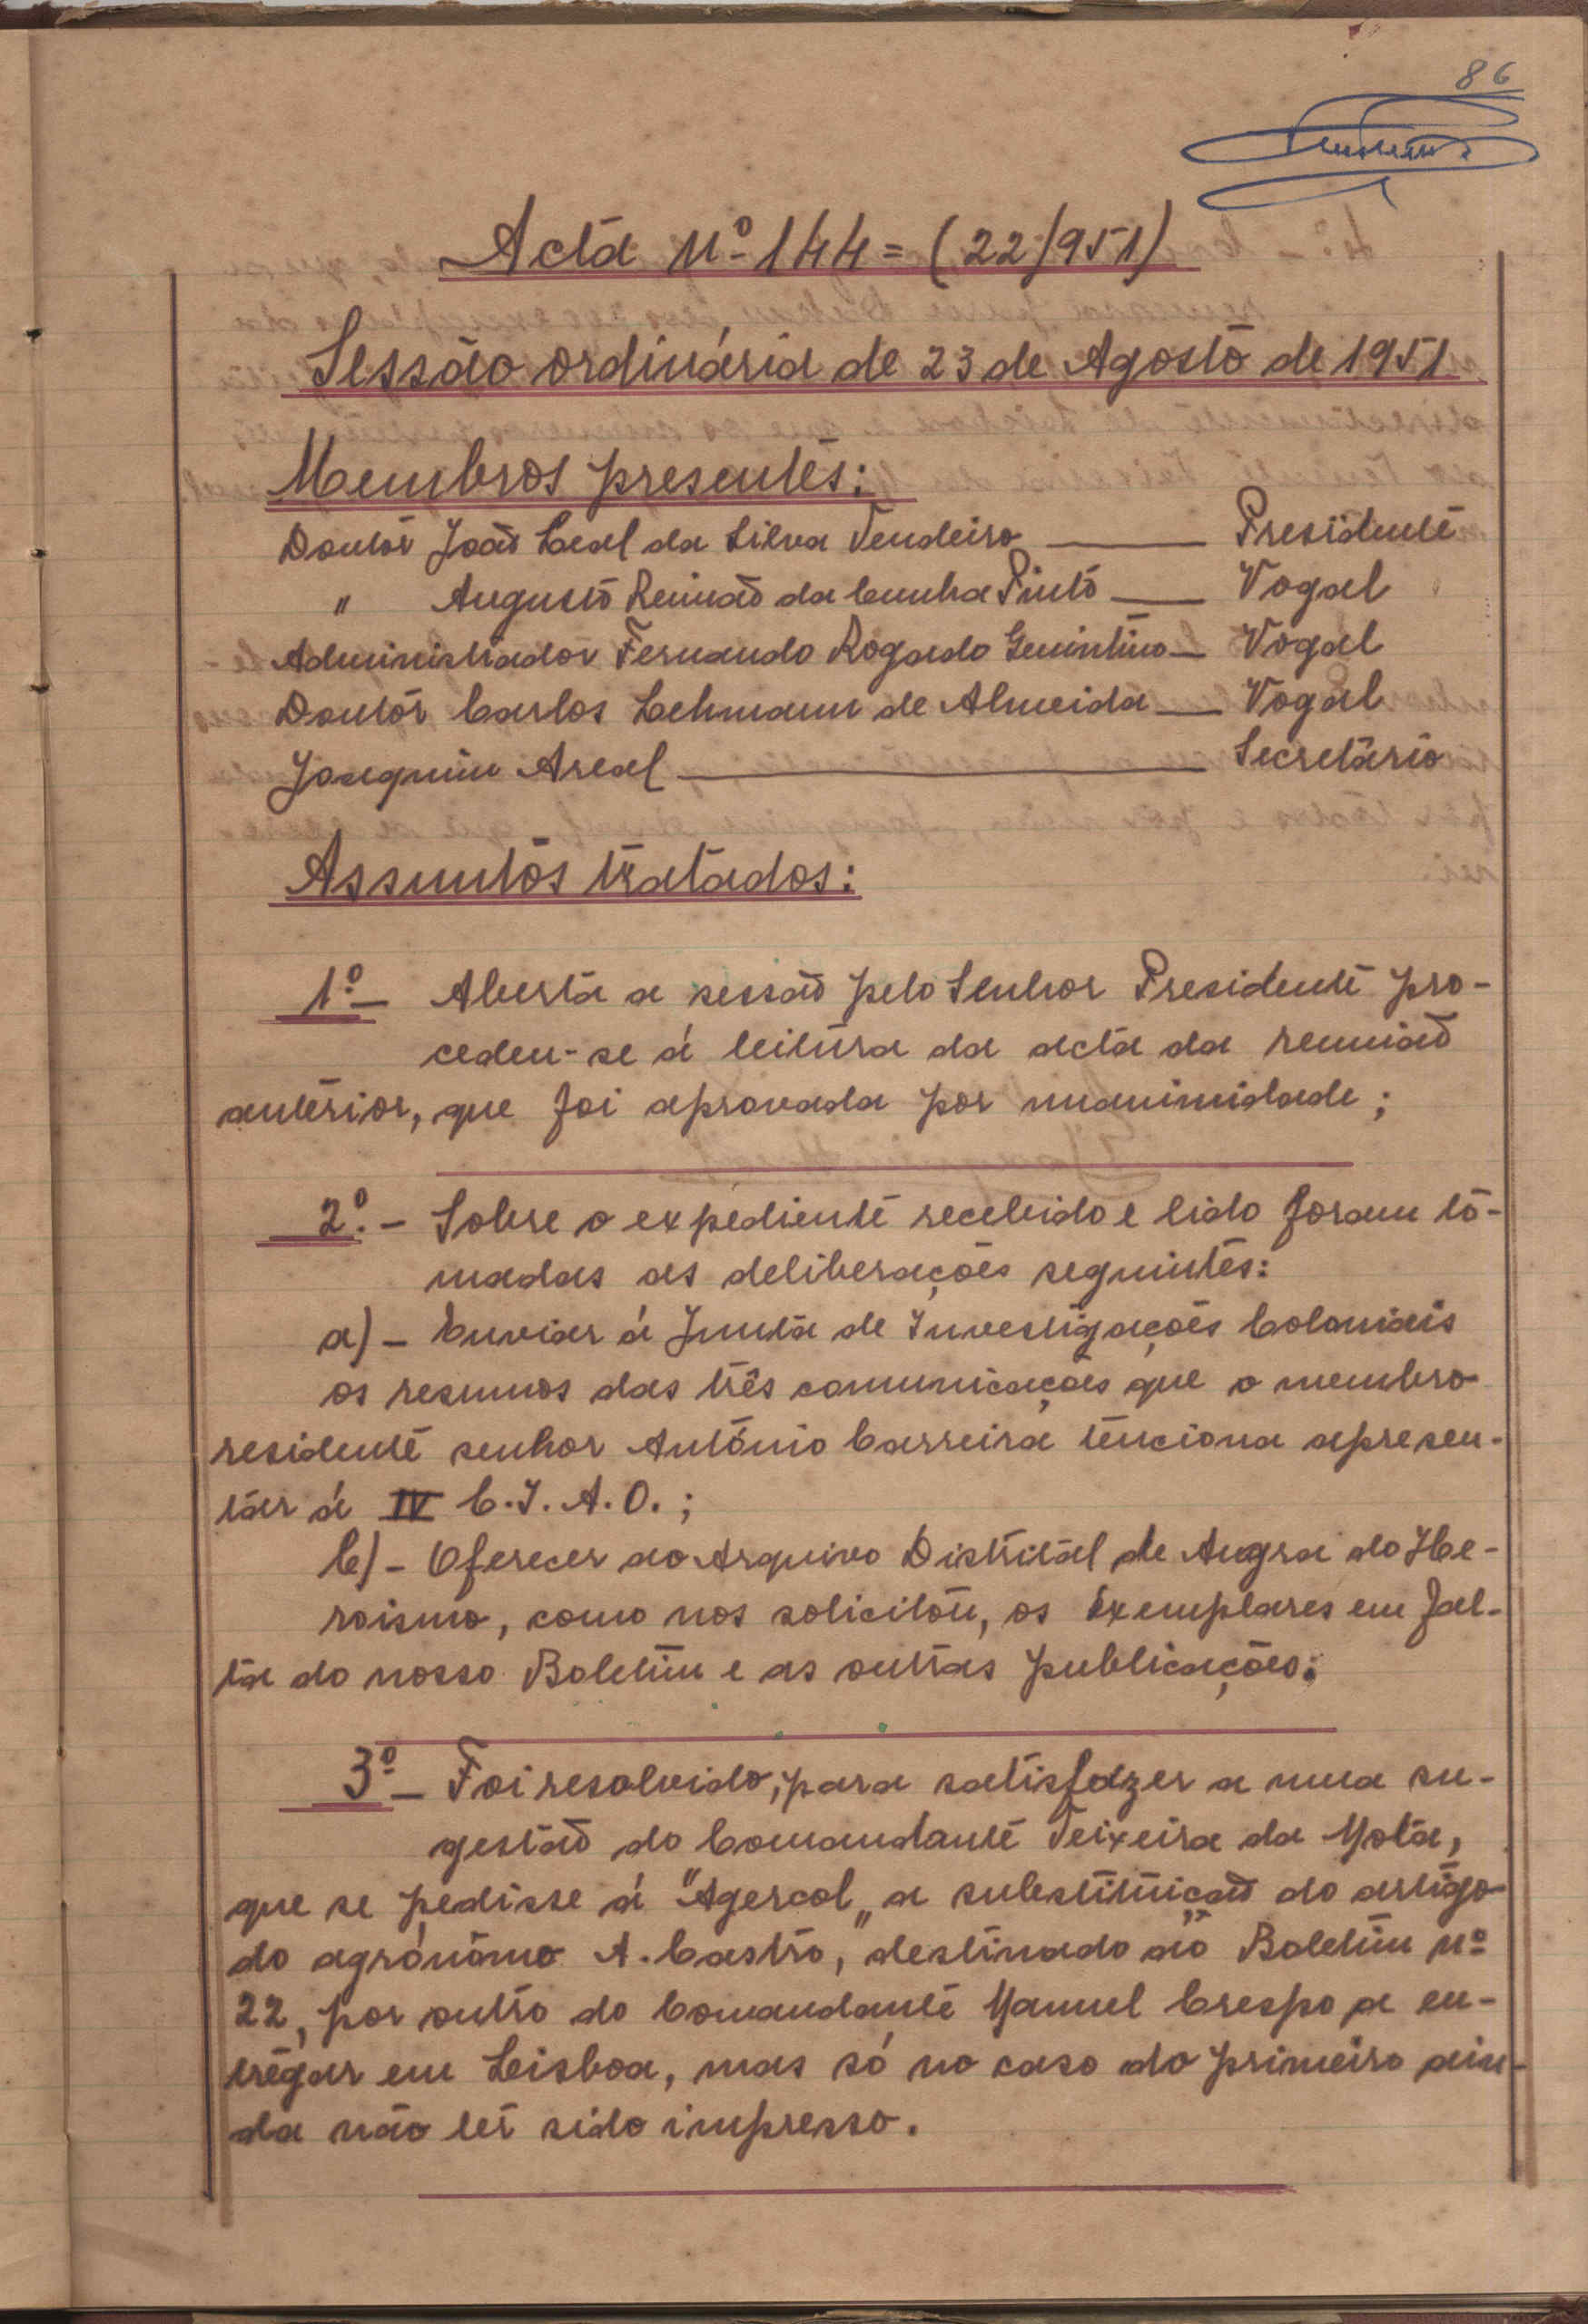 86
Acta Nº 144 = (22/951)
Sessão ordinária de 23 de Agosto de 1951
Membros presentes:
Doutor João Leal da Silva Tendeiro — Presidente
" Augusto Reimão da Cunha Pinto — Vogal
Administrador Fernando Rogado Quintino — Vogal
Doutor Carlos Lehmann de Almeida — Vogal
Joaquim Areal — Secretário
Assuntos tratados:
1º - Aberta a sessão pelo Senhor Presidente pro-
cedeu-se á leitura da acta da reunião
anterior, que foi aprovada por unanimidade;
2º. - Sobre o expediente recebido e lido foram to-
madas as deliberações seguintes:
a) - Enviar á Junta de Investigações Coloniais
os resumos das três comunicações que o membro
residente senhor António Carreira tenciona apresen-
tar á IV C.I.A.O.;
b) - Oferecer ao Arquivo Distrital de Angra do He-
roismo, como nos solicitou, os exemplares em fal-
ta do nosso Boletim e as outras publicações;
3º - Foi resolvido, para satisfazer a uma su-
gestão do Comandante Teixeira da Mota,
que se pedisse á "Agercol" a substituição do artigo
do agrónomo A. Castro, destinado ao Boletim nº
22, por outro do Comandante Manuel Crespo a en-
tregar em Lisboa, mas só no caso do primeiro ain-
da não ter sido impresso.